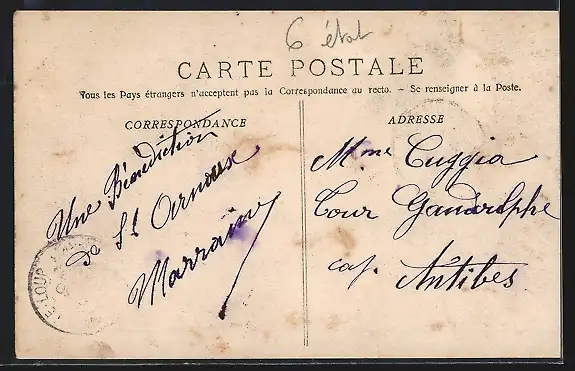 6 état
CARTE POSTALE
Tous les Pays étrangers n'acceptent pas la Correspondance au recto. – Se renseigner à la Poste.
CORRESPONDANCE
Une Bénédiction
de St Arnoux
Marraine
LE LOUP
ADRESSE
Mme Cuggia
Cour Gandolphe
cap. Antibes